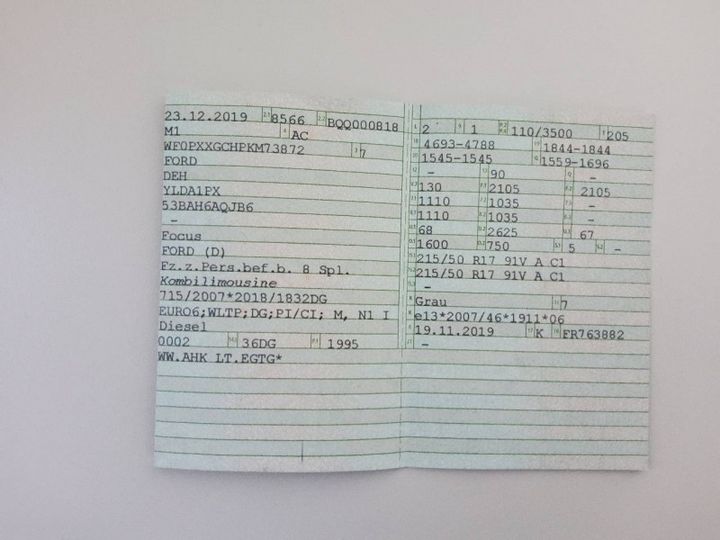 23.12.2019 8566 BQQ000818
M1 AC
WF0PXXGCHPKM73872 7
FORD
DEH
YLDA1PX
53BAH6AQJB6
-
Focus
FORD (D)
Fz.z.Pers.bef.b. 8 Spl.
Kombilimousine
715/2007*2018/1832DG
EURO6;WLTP;DG;PI/CI; M, N1 I
Diesel
0002 36DG 1995
WW.AHK LT.EGTG*
2 1 110/3500 205
4693-4788 1844-1844
1545-1545 1559-1696
- 90 -
130 2105 2105
1110 1035 -
1110 1035 -
68 2625 67
1600 750 5 -
215/50 R17 91V A C1
215/50 R17 91V A C1
-
Grau 7
e13*2007/46*1911*06
19.11.2019 K FR763882
-